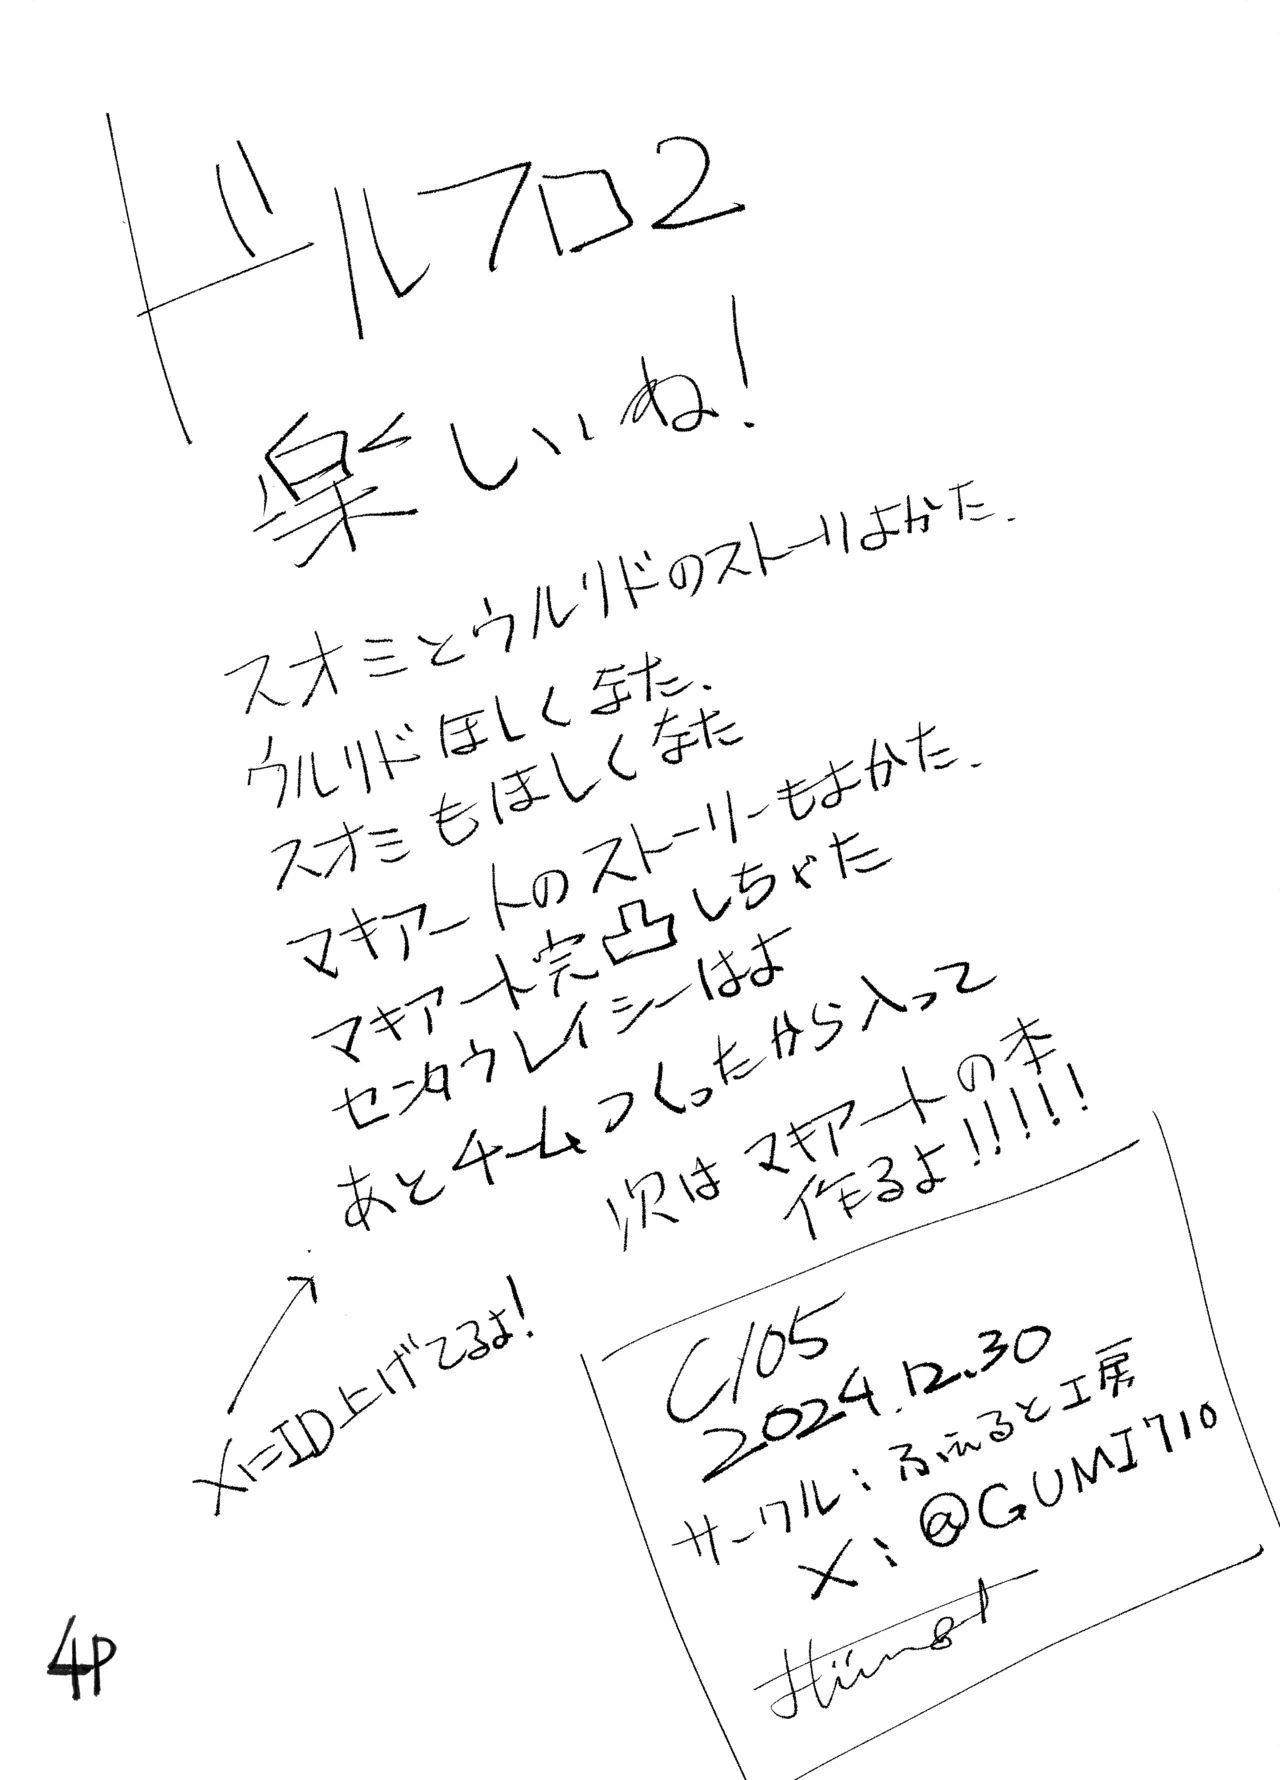 ドルフロ2
楽しいね!
スオミとウルリドのストーリよかた.
ウルリドほしくなた.
スオミもほしくなた
マキアートのストーリーもよかた.
マキアート完凸しちゃた
センタウレイシーはよ
あとチームつくったから入って
次はマキアートの本
作るよ!!!!!
X=ID上げてるよ!
C105
2024.12.30
サークル:ふぇると工房
X:@GUMI710
4P